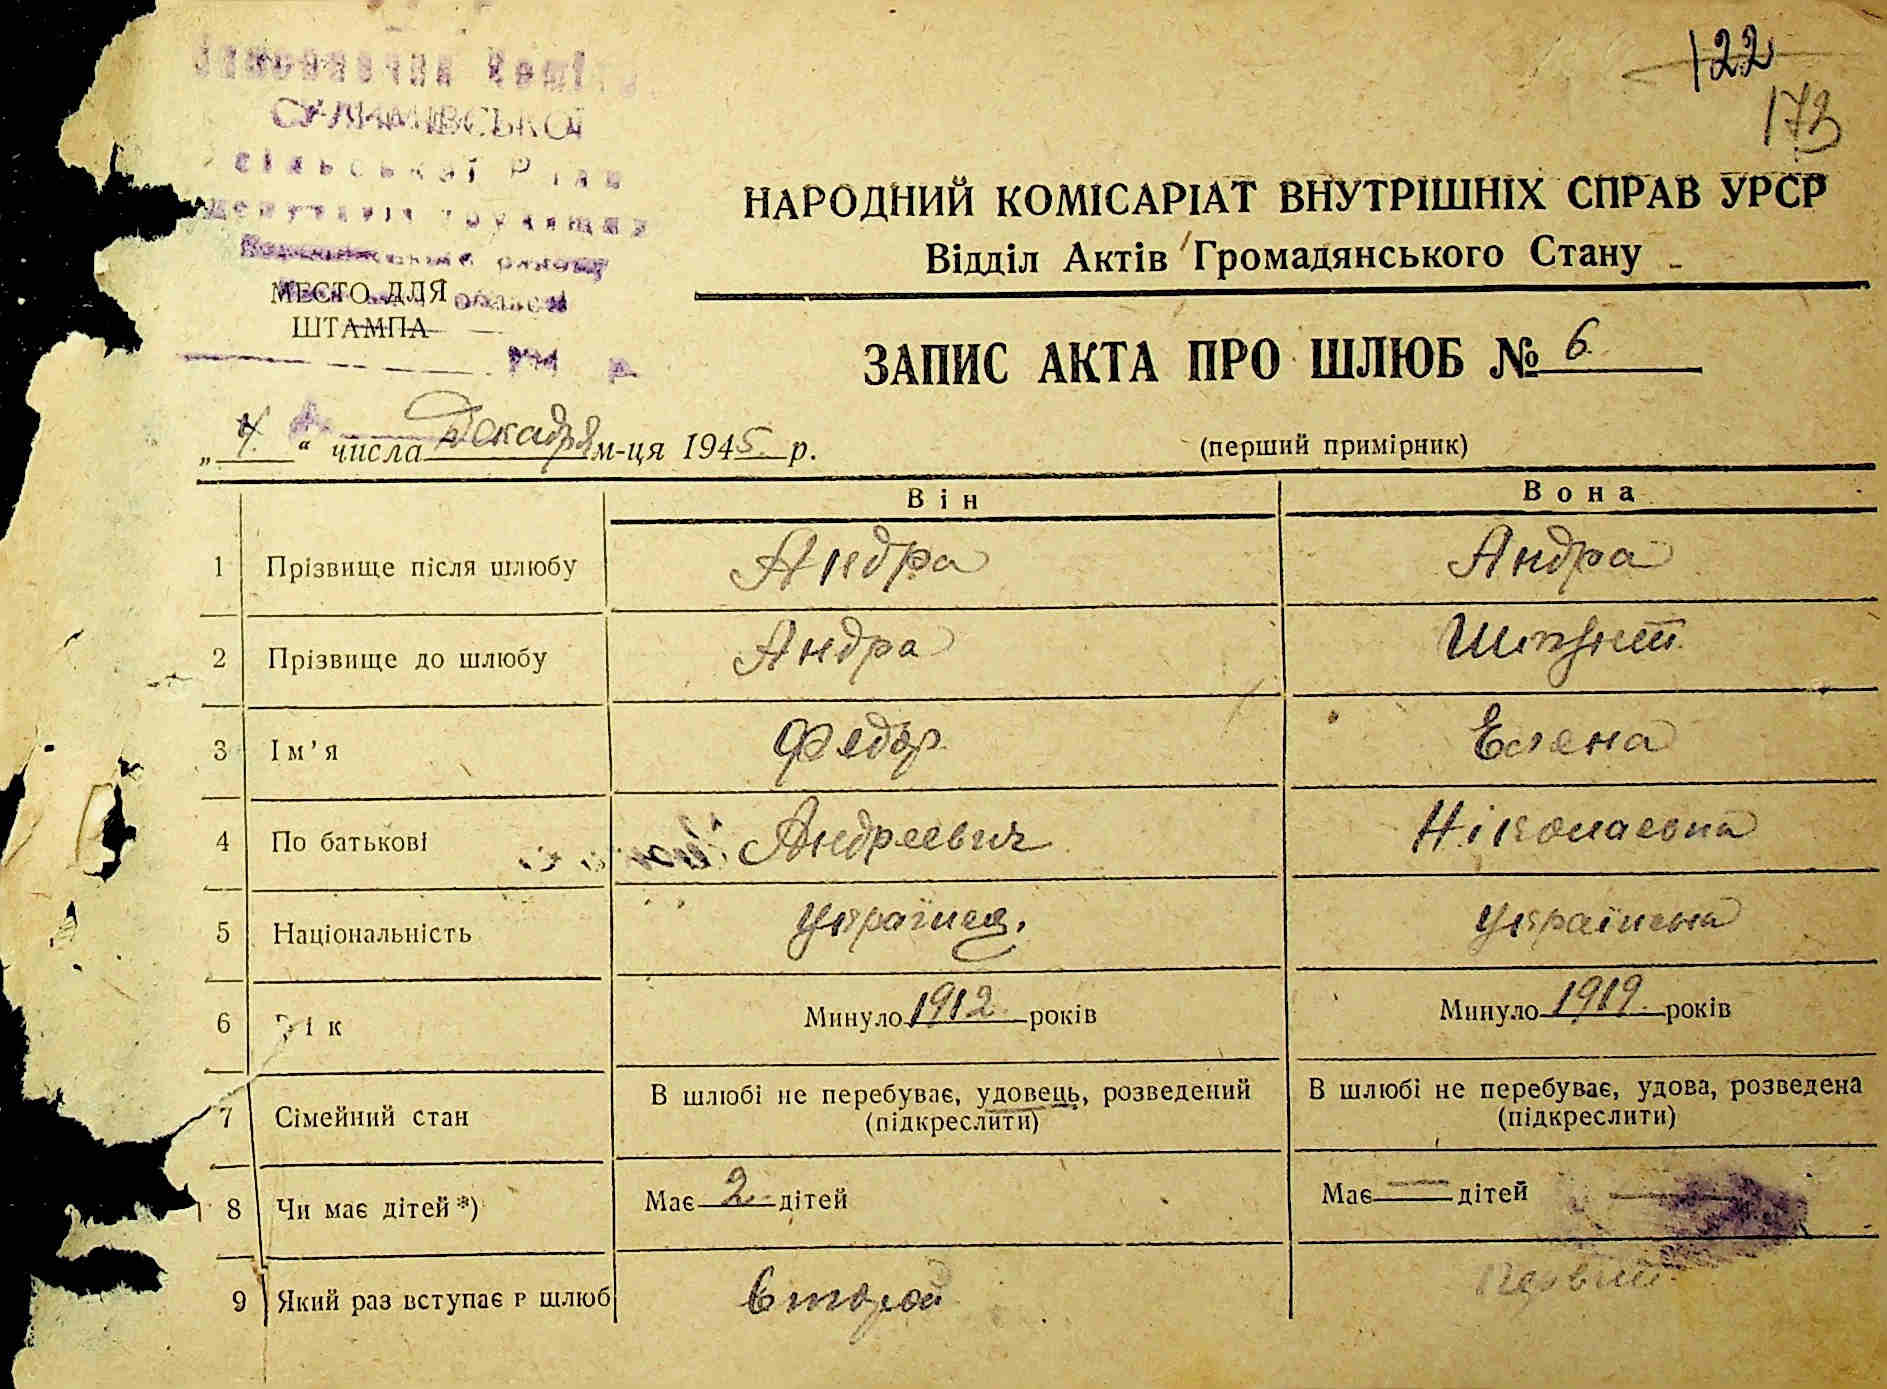 122
173
СУЛИМІВСЬКОЇ
сільської Ради
депутатів трудящих
МЕСТО ДЛЯ
ШТАМПА
НАРОДНИЙ КОМІСАРІАТ ВНУТРІШНІХ СПРАВ УРСР
Відділ Актів Громадянського Стану
ЗАПИС АКТА ПРО ШЛЮБ № 6
„ 4 “ числа Декабря м-ця 1945 р.
(перший примірник)
Він Вона
1 Прізвище після шлюбу Андра Андра
2 Прізвище до шлюбу Андра
3 Ім'я Федор Елена
4 По батькові Андреевич Ніколаевна
5 Національність Українец. Українка
6 Вік Минуло 1912 років Минуло 1919 років
7 Сімейний стан В шлюбі не перебуває, удовець, розведений (підкреслити) В шлюбі не перебуває, удова, розведена (підкреслити)
8 Чи має дітей *) Має 2 дітей Має — дітей
9 Який раз вступає в шлюб Второй Первий